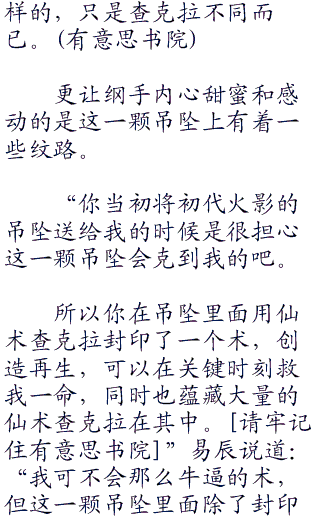 样的，只是查克拉不同而
已。(有意思书院)
更让纲手内心甜蜜和感
动的是这一颗吊坠上有着一
些纹路。
“你当初将初代火影的
吊坠送给我的时候是很担心
这一颗吊坠会克到我的吧。
所以你在吊坠里面用仙
术查克拉封印了一个术，创
造再生，可以在关键时刻救
我一命，同时也蕴藏大量的
仙术查克拉在其中。[请牢记
住有意思书院]”易辰说道：
“我可不会那么牛逼的术，
但这一颗吊坠里面除了封印